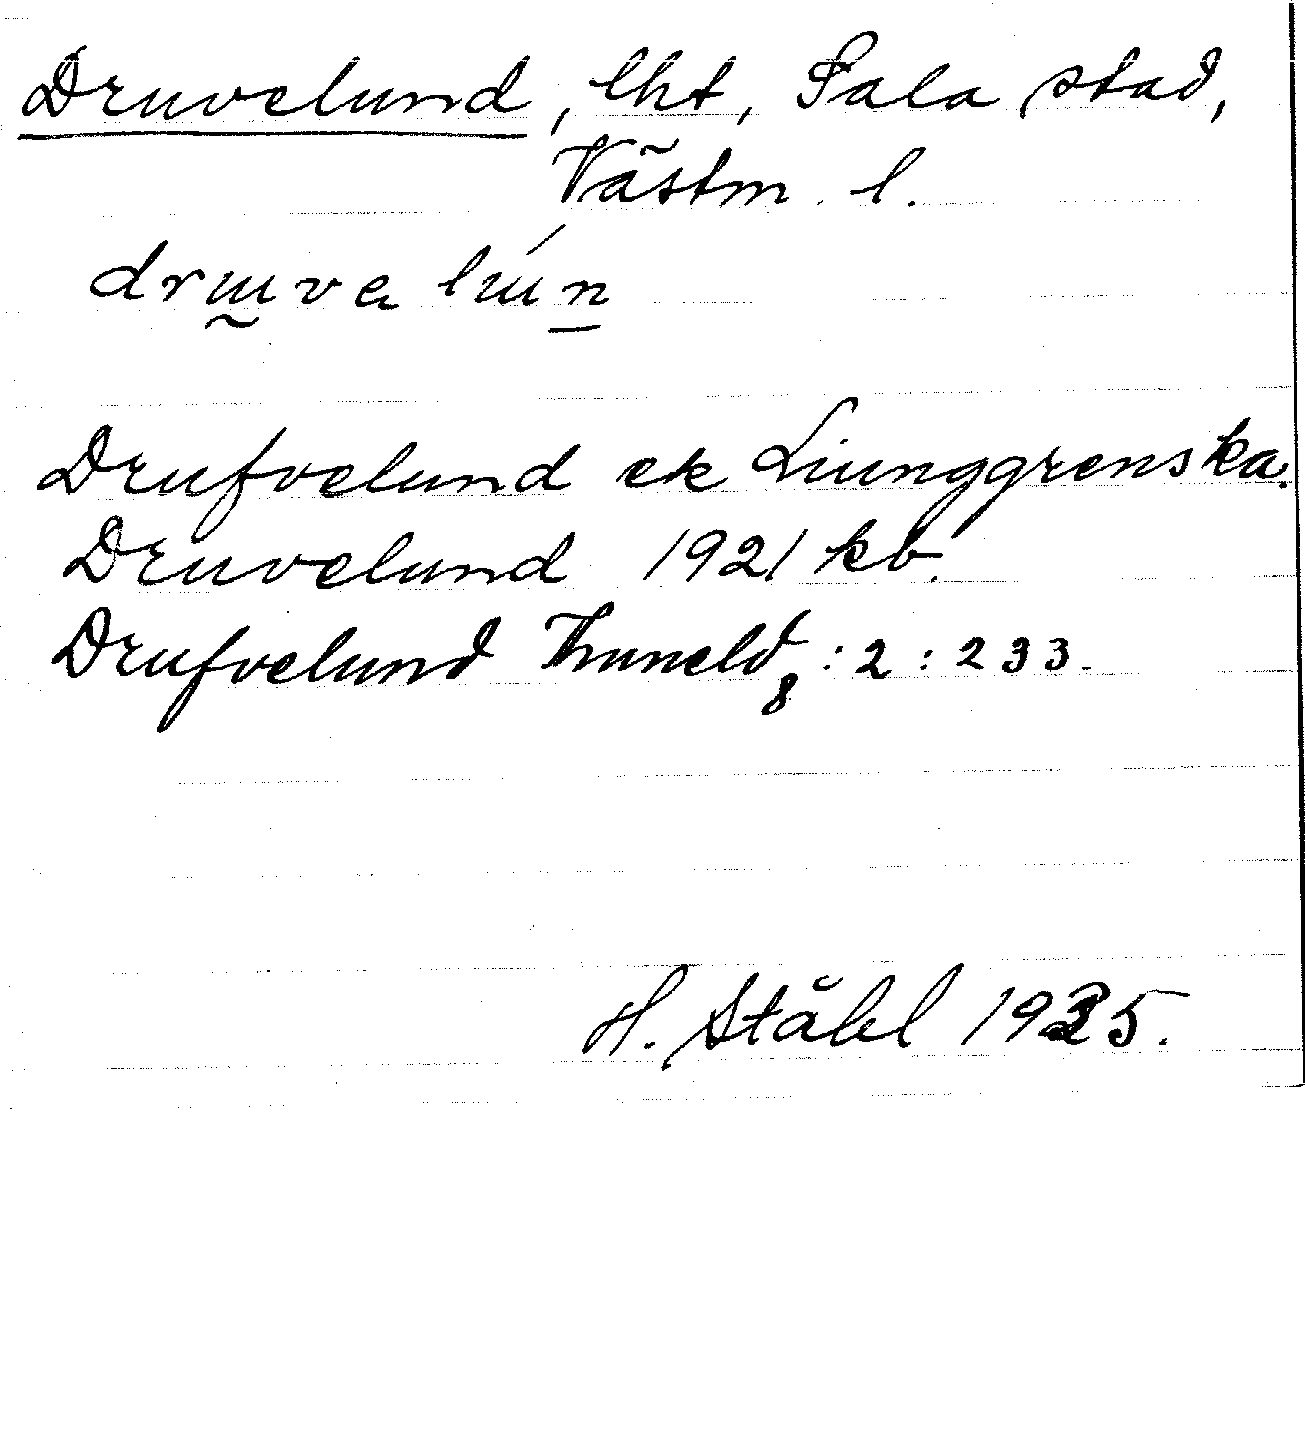 Druvelund, lht, Sala stad,
Västm. l.
Drufvelund ek Liunggrenska.
Druvelund 1921 kb.
Drufvelund Tuneld8:2:233.
H. Ståhl 1935.